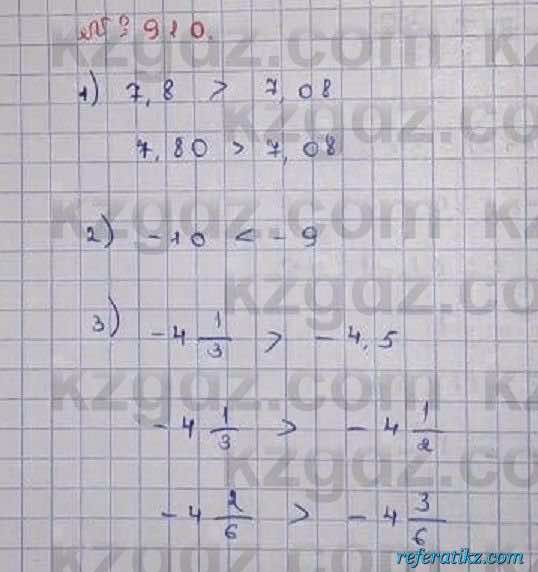 № 910.
1) 7,8 > 7,08
7,80 > 7,08
2) -10 < -9
3) -4 1/3 > -4,5
-4 1/3 > -4 1/2
-4 2/6 > -4 3/6
kzgdz.com
referatikz.com